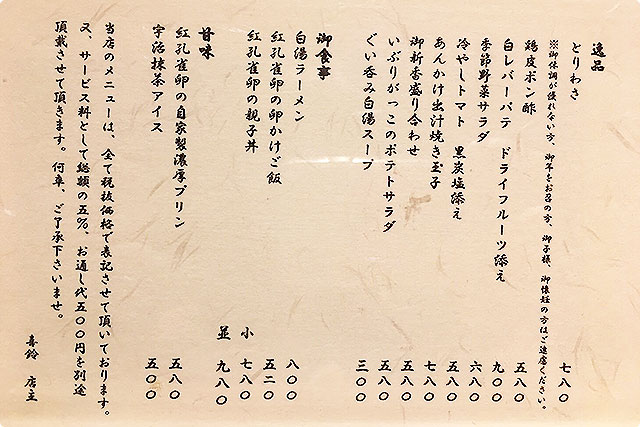 逸品
とりわさ 七八〇
※御体調が優れない方、御年をお召の方、御子様、御懐妊の方はご遠慮ください。
鶏皮ポン酢 五八〇
白レバーパテ ドライフルーツ添え 九〇〇
季節野菜サラダ 六八〇
冷やしトマト 黒炭塩添え 五八〇
あんかけ出汁焼き玉子 七八〇
御新香盛り合わせ 五八〇
いぶりがっこのポテトサラダ 五八〇
ぐい呑み白湯スープ 三〇〇
御食事
白湯ラーメン 八〇〇
紅孔雀卵の卵かけご飯 五二〇
紅孔雀卵の親子丼 小 七八〇
並 九八〇
甘味
紅孔雀卵の自家製濃厚プリン 五八〇
宇治抹茶アイス 五〇〇
当店のメニューは、全て税抜価格で表記させて頂いております。
又、サービス料として総額の五%、お通し代五〇〇円を別途
頂戴させて頂きます。何卒、ご了承下さいませ。
喜鈴 店主